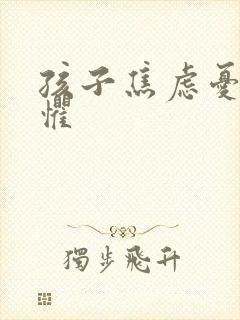 孩子焦虑憂
懼
獨步飛升